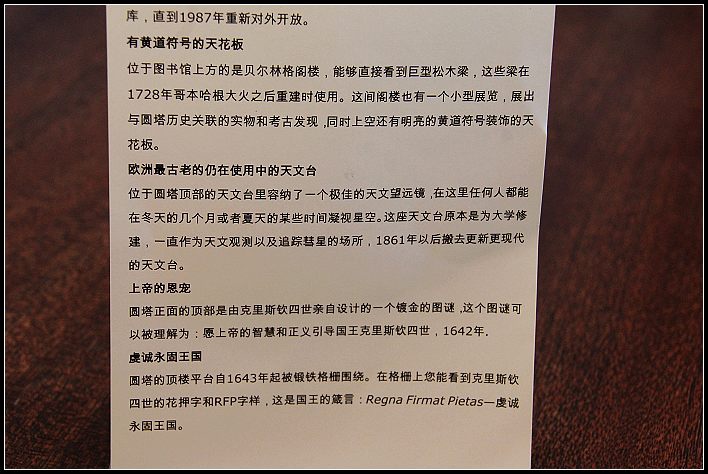 库，直到1987年重新对外开放。
有黄道符号的天花板
位于图书馆上方的是贝尔林格阁楼，能够直接看到巨型松木梁，这些梁在
1728年哥本哈根大火之后重建时使用。这间阁楼也有一个小型展览，展出
与圆塔历史关联的实物和考古发现，同时上空还有明亮的黄道符号装饰的天
花板。
欧洲最古老的仍在使用中的天文台
位于圆塔顶部的天文台里容纳了一个极佳的天文望远镜，在这里任何人都能
在冬天的几个月或者夏天的某些时间凝视星空。这座天文台原本是为大学修
建，一直作为天文观测以及追踪彗星的场所，1861年以后搬去更新更现代
的天文台。
上帝的恩宠
圆塔正面的顶部是由克里斯钦四世亲自设计的一个镀金的图谜，这个图谜可
以被理解为：愿上帝的智慧和正义引导国王克里斯钦四世，1642年.
虔诚永固王国
圆塔的顶楼平台自1643年起被锻铁格栅围绕。在格栅上您能看到克里斯钦
四世的花押字和RFP字样，这是国王的箴言：Regna Firmat Pietas—虔诚
永固王国。